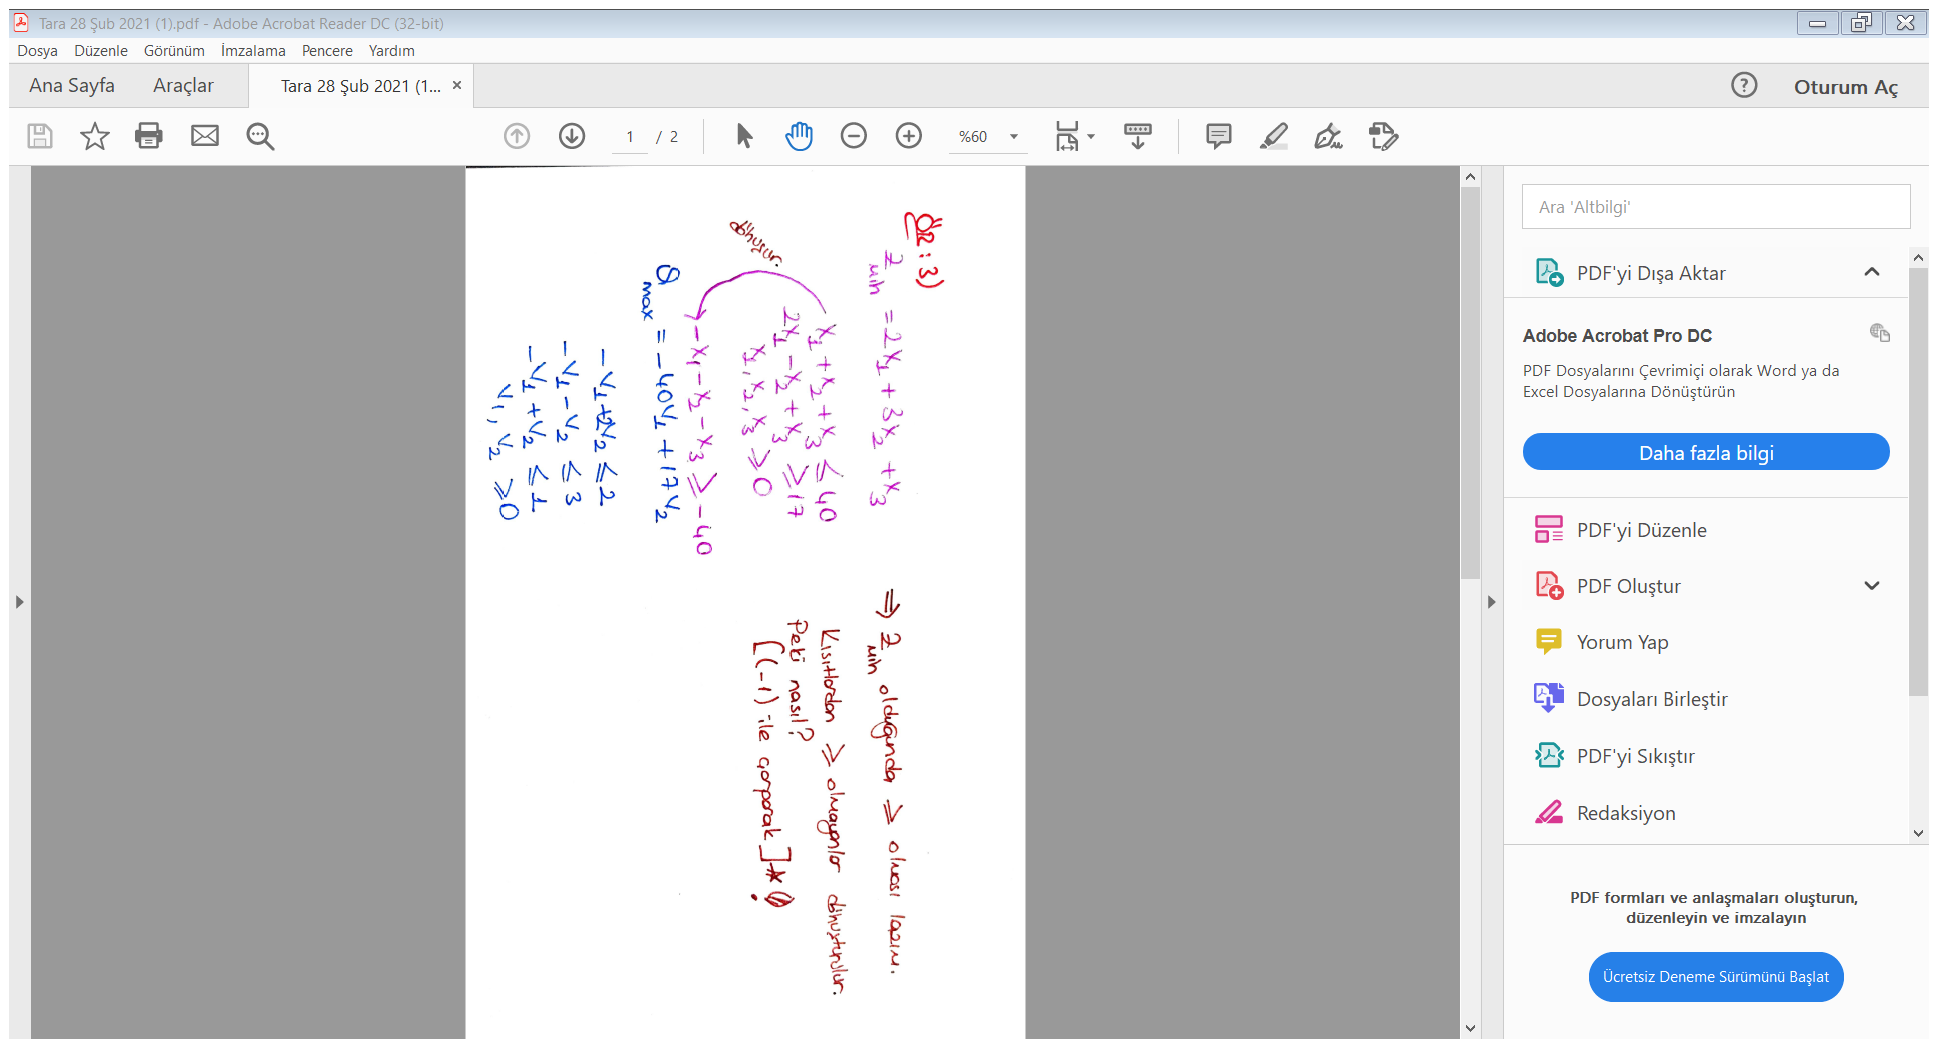 Tara 28 Şub 2021 (1).pdf - Adobe Acrobat Reader DC (32-bit)
Dosya Düzenle Görünüm İmzalama Pencere Yardım
Ana Sayfa Araçlar Tara 28 Şub 2021 (1... × Oturum Aç
1 / 2 %60
ÖR: 3)
Zmin = 2x₁ + 3x₂ + x₃
x₁ + x₂ + x₃ ≤ 40
2x₁ - x₂ + x₃ ≥ 17
x₁, x₂, x₃ ≥ 0
dönüşür.
-x₁ - x₂ - x₃ ≥ -40
Qmax = -40y₁ + 17y₂
-y₁ + 2y₂ ≤ 2
-y₁ - y₂ ≤ 3
-y₁ + y₂ ≤ 1
y₁, y₂ ≥ 0
⇒ Zmin olduğunda ≥ olması lazım.
Kısıtlardan ≥ olmayanlar dönüştürülür.
Peki nasıl?
[(-1) ile çarparak]*!
Ara 'Altbilgi'
PDF'yi Dışa Aktar
Adobe Acrobat Pro DC
PDF Dosyalarını Çevrimiçi olarak Word ya da
Excel Dosyalarına Dönüştürün
Daha fazla bilgi
PDF'yi Düzenle
PDF Oluştur
Yorum Yap
Dosyaları Birleştir
PDF'yi Sıkıştır
Redaksiyon
PDF formları ve anlaşmaları oluşturun,
düzenleyin ve imzalayın
Ücretsiz Deneme Sürümünü Başlat